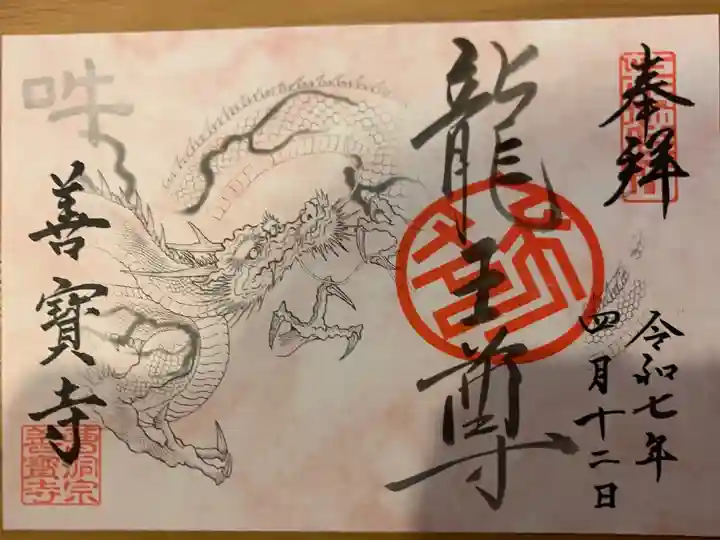 奉拝
令和七年
四月十二日
龍王尊
吽
善寳寺
曹洞宗
善寳寺